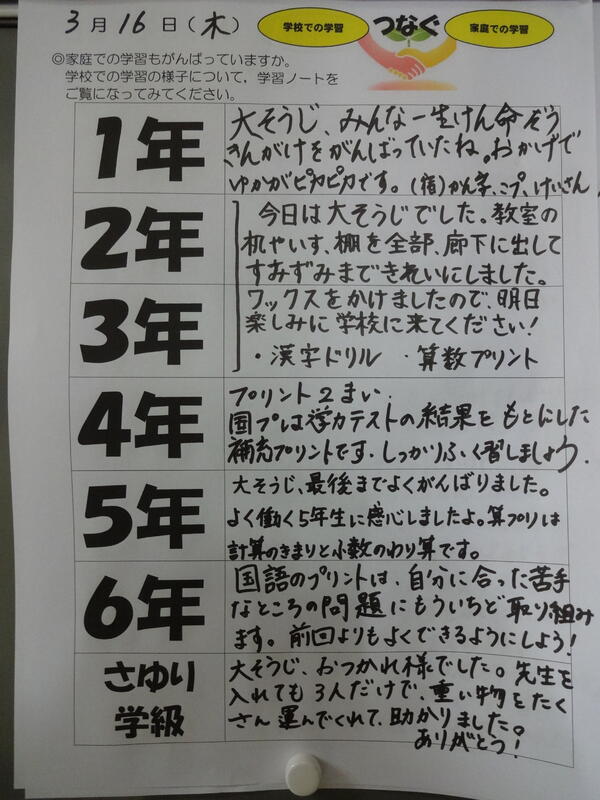 3月16日(木)
学校での学習 つなぐ 家庭での学習
◎家庭での学習もがんばっていますか。
学校での学習の様子について，学習ノートを
ご覧になってみてください。
1年
大そうじ、みんな一生けん命ぞう
きんがけをがんばっていたね。おかげで
ゆかがピカピカです。(宿)かん字、こプ、けいさん
2年
3年
今日は大そうじでした。教室の
机やいす、棚を全部、廊下に出して
すみずみまできれいにしました。
ワックスをかけましたので、明日
楽しみに学校に来てください!
・漢字ドリル ・算数プリント
4年
プリント2まい
国プは学力テストの結果をもとにした
補充プリントです。しっかりふく習しましょう.
5年
大そうじ、最後までよくがんばりました。
よく働く5年生に感心しましたよ。算プリは
計算のきまりと小数のわり算です。
6年
国語のプリントは、自分に合った苦手
なところの問題にもういちど取り組み
ます。前回よりもよくできるようにしよう!
さゆり
学級
大そうじ、おつかれ様でした。先生を
入れても3人だけで、重い物をたく
さん運んでくれて、助かりました。
ありがとう!